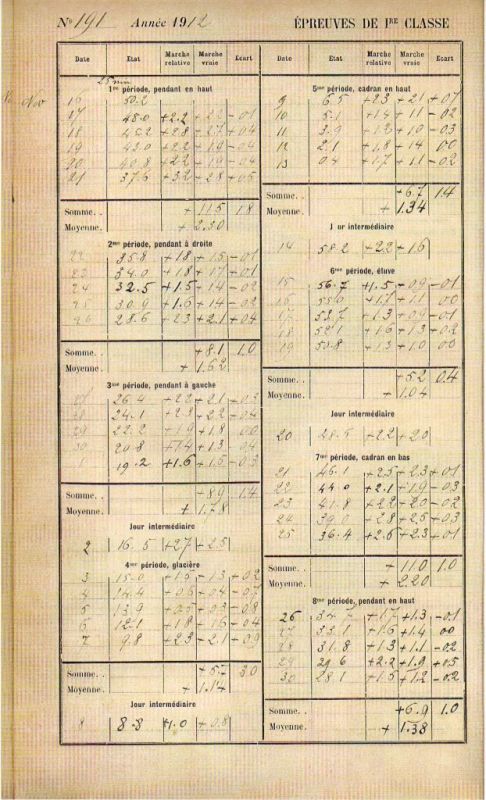 No 191 Année 1912 ÉPREUVES DE Ire CLASSE
Date Etat Marche relative Marche vraie Ecart
25 min
1re période, pendant en haut
Nov
16 50.2
17 48.0 +2.2 +2.2 -0.1
18 45.2 +2.8 +2.7 +0.4
19 43.0 +2.2 +1.9 -0.4
20 40.8 +2.2 +1.9 -0.4
21 37.6 +3.2 +2.8 +0.5
Somme. . + 11.5 1.8
Moyenne. + 2.30
2me période, pendant à droite
22 35.8 +1.8 +1.5 -0.1
23 34.0 +1.8 +1.7 +0.1
24 32.5 +1.5 +1.4 -0.2
25 30.9 +1.6 +1.4 -0.2
26 28.6 +2.3 +2.1 +0.4
Somme. . +8.1 1.0
Moyenne. + 1.62
3me période, pendant à gauche
27 26.4 +2.2 +2.1 +0.3
28 24.1 +2.3 +2.2 +0.4
29 22.2 +1.9 +1.8 0.0
30 20.8 +1.4 +1.3 -0.4
1 19.2 +1.6 +1.5 -0.3
Somme. . +8.9 1.4
Moyenne. + 1.78
Jour intermédiaire
2 16.5 +2.7 +2.5
4me période, glacière
3 15.0 +1.5 +1.3 +0.2
4 14.4 +0.6 +0.4 -0.7
5 13.9 +0.5 +0.3 -0.8
6 12.1 +1.8 +1.6 +0.4
7 9.8 +2.3 +2.1 +0.9
Somme. . +5.7 3.0
Moyenne. + 1.14
Jour intermédiaire
8 8.8 +1.0 +0.8
Date Etat Marche relative Marche vraie Ecart
5me période, cadran en haut
9 6.5 +2.3 +2.1 +0.7
10 5.1 +1.4 +1.1 -0.2
11 3.9 +1.2 +1.0 -0.3
12 2.1 +1.8 +1.4 0.0
13 0.4 +1.7 +1.1 -0.2
Somme. . +6.7 1.4
Moyenne. + 1.34
J ur intermédiaire
14 58.2 +2.2 +1.6
6me période, étuve
15 56.7 +1.5 +0.9 -0.1
16 55.0 +1.7 +1.1 0.0
17 53.7 +1.3 +0.9 -0.1
18 52.1 +1.6 +1.3 +0.2
19 50.8 +1.3 +1.0 0.0
Somme. . +5.2 0.4
Moyenne. + 1.04
Jour intermédiaire
20 +2.2 +2.0
7me période, cadran en bas
21 46.1 +2.5 +2.3 +0.1
22 44.0 +2.1 +1.9 -0.3
23 41.8 +2.2 +2.0 -0.2
24 39.0 +2.8 +2.5 +0.3
25 36.4 +2.6 +2.3 +0.1
Somme. . +11.0 1.0
Moyenne. + 2.20
8me période, pendant en haut
26 34.7 +1.7 +1.3 -0.1
27 33.1 +1.6 +1.4 0.0
28 31.8 +1.3 +1.1 -0.2
29 29.6 +2.2 +1.9 +0.5
30 28.1 +1.5 +1.2 -0.2
Somme. . +6.9 1.0
Moyenne. + 1.38